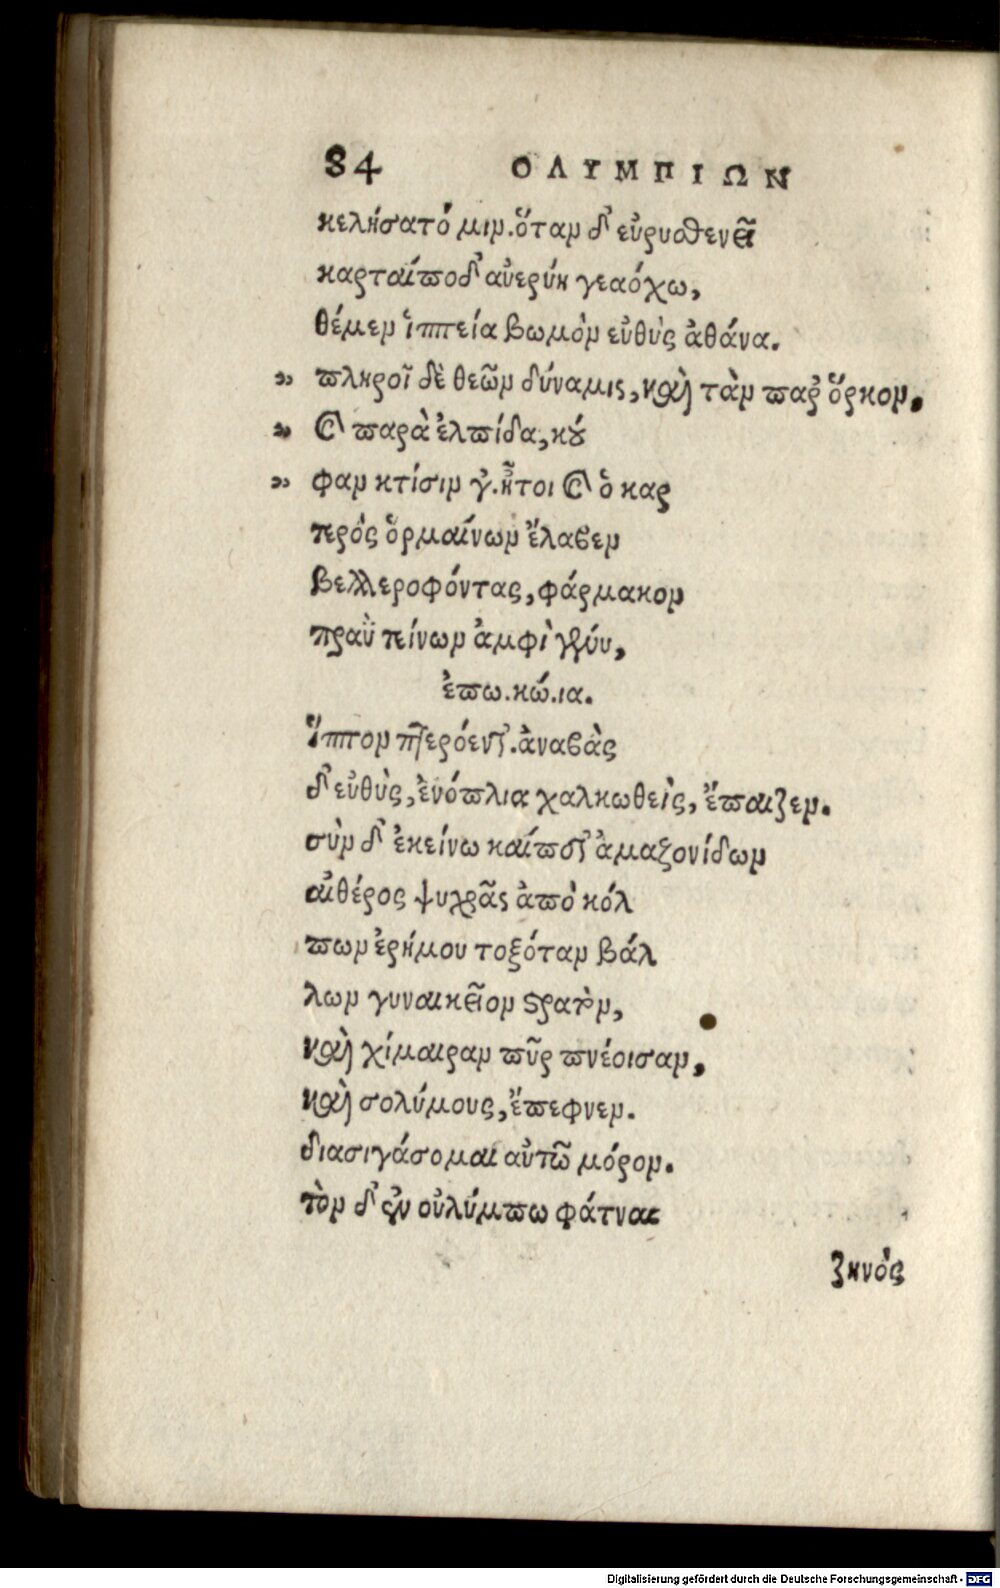 84 ΟΛΥΜΠΙΩΝ
κελήσατό μιν. ὅταν δ' εὐρυσθενεῖ
καρταίποδ' αὐερύη γεαόχω,
θέμεν ἱππεία βωμὸν εὐθὺς ἀθάνα.
„ πληροῖ δὲ θεῶν δύναμις, καὶ τὰν παρ' ὅρκον,
„ καὶ παρὰ ἐλπίδα, κού
„ φαν κτίσιν γ'. ἤτοι καὶ ὁ καρ
τερὸς ὁρμαίνων ἕλαβεν
βελλεροφόντας, φάρμακον
πραῢ τείνων ἀμφὶ γένυν,
ἐπω. κώ. ια.
Ἵππον πτερόεντ'. ἀναβὰς
δ' εὐθὺς, ἐνόπλια χαλκωθεὶς, ἔπαιζεν.
σὺν δ' ἐκείνω καίποτ' ἀμαζονίδων
αἰθέρος ψυχρᾶς ἀπὸ κόλ
πων ἐρήμου τοξόταν βάλ
λων γυναικεῖον στρατὸν,
καὶ χίμαιραν πῦρ πνέοισαν,
καὶ σολύμους, ἔπεφνεν.
διασιγάσομαι αὐτῶ μόρον.
τὸν δ' ἐν οὐλύμπω φάτναι
ζηνὸς
Digitalisierung gefördert durch die Deutsche Forschungsgemeinschaft - DFG